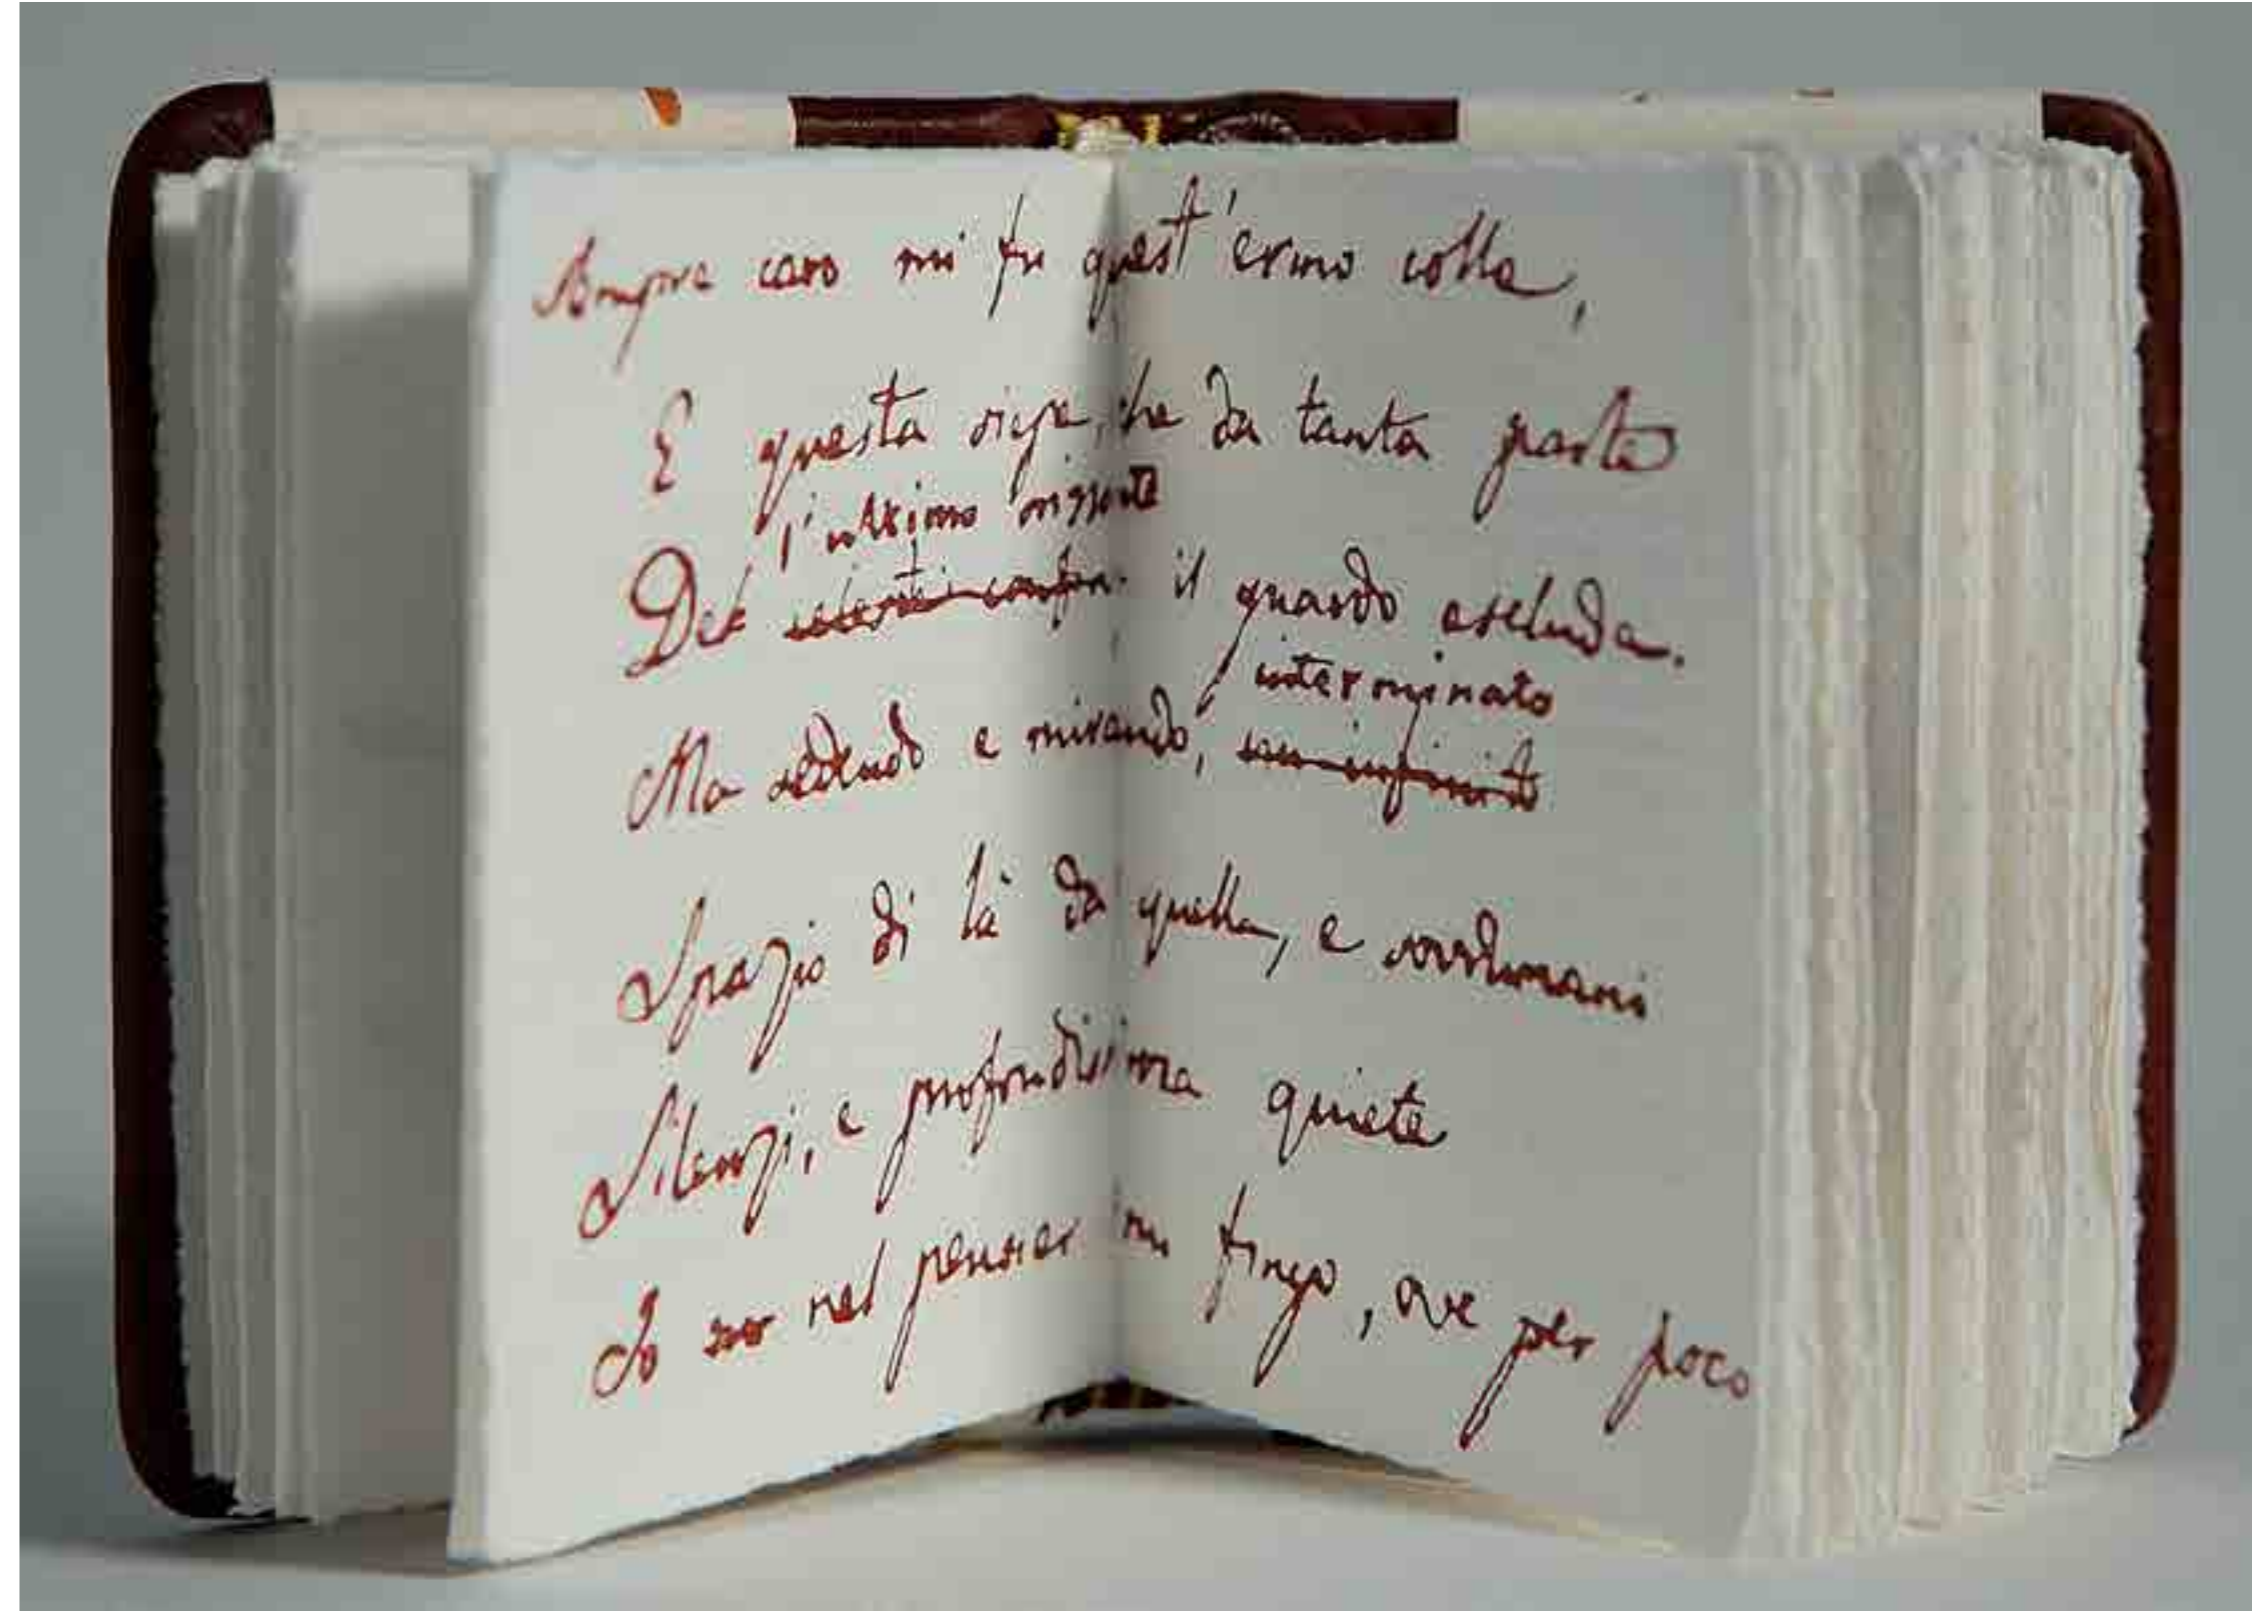 Sempre caro mi fu quest'ermo colle,
E questa siepe, che da tanta parte
l'ultimo orizzonte
Del celeste confin il guardo esclude.
interminato
Ma sedendo e mirando, un infinito
Spazio di là da quella, e sovrumani
Silenzi, e profondissima quiete
Io nel pensier mi fingo, ove per poco